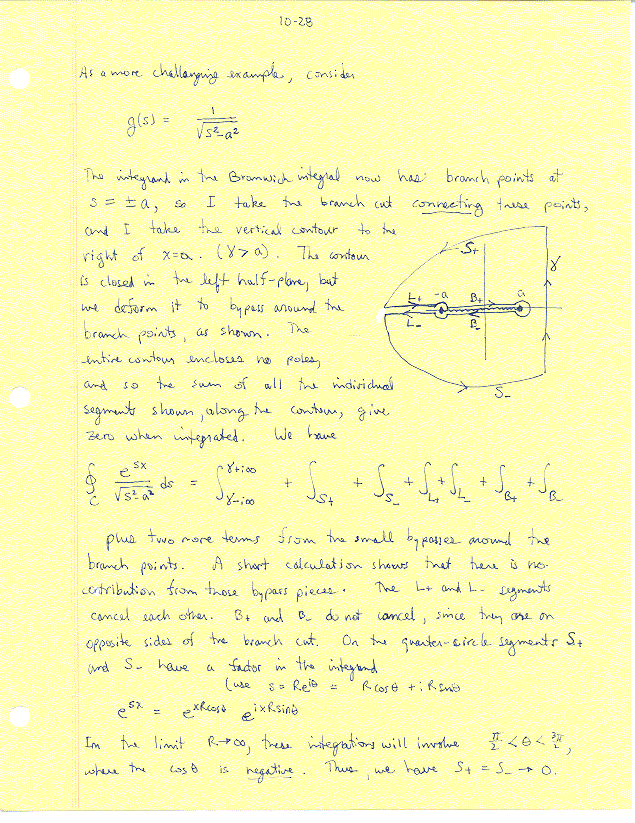 10-28
As a more challenging example, consider
g(s) = 1/√(s²-a²)
The integrand in the Bromwich integral now has branch points at
s = ±a, so I take the branch cut connecting these points,
and I take the vertical contour to the
right of x=a. (γ>a). The contour
is closed in the left half-plane, but
we deform it to bypass around the
branch points, as shown. The
entire contour encloses no poles,
and so the sum of all the individual
segments shown, along the contour, give
zero when integrated. We have
S+
γ
L+ -a B+ a
L- B-
S-
∮_C e^{sx}/√(s²-a²) ds = ∫_{γ-i∞}^{γ+i∞} + ∫_{S+} + ∫_{S-} + ∫_{L+} + ∫_{L-} + ∫_{B+} + ∫_{B-}
plus two more terms from the small bypasses around the
branch points. A short calculation shows that there is no
contribution from those bypass pieces. The L+ and L- segments
cancel each other. B+ and B- do not cancel, since they are on
opposite sides of the branch cut. On the quarter-circle segments S+
and S- have a factor in the integrand
(use s = Re^{iθ} = R cosθ + i R sinθ
e^{sx} = e^{xRcosθ} e^{ixRsinθ}
In the limit R→∞, these integrations will involve π/2 < θ < 3π/2,
where the cosθ is negative. Thus, we have S+ = S- → 0.